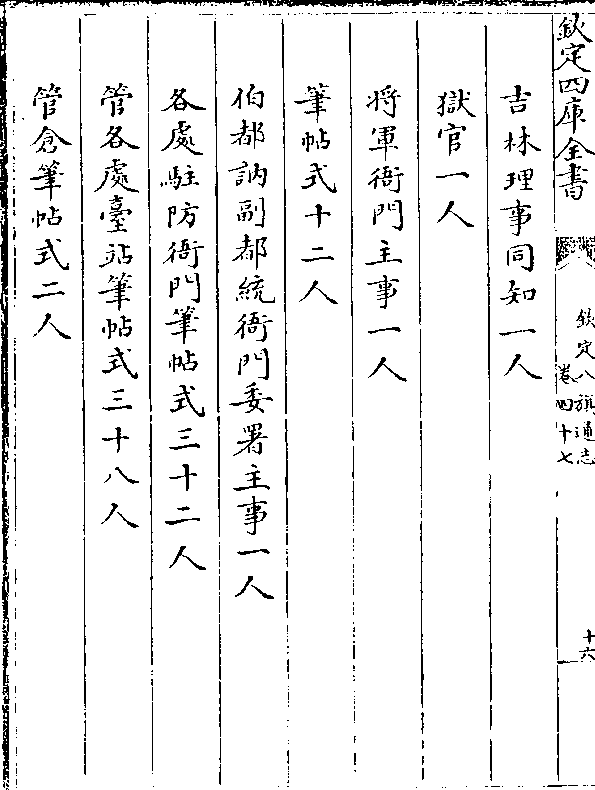 欽定四庫全書
欽定八旗通志
卷四十七
十六
吉林理事同知一人
獄官一人
將軍衙門主事一人
筆帖式十二人
伯都訥副都統衙門委署主事一人
各處駐防衙門筆帖式三十二人
管各處臺站筆帖式三十八人
管倉筆帖式二人